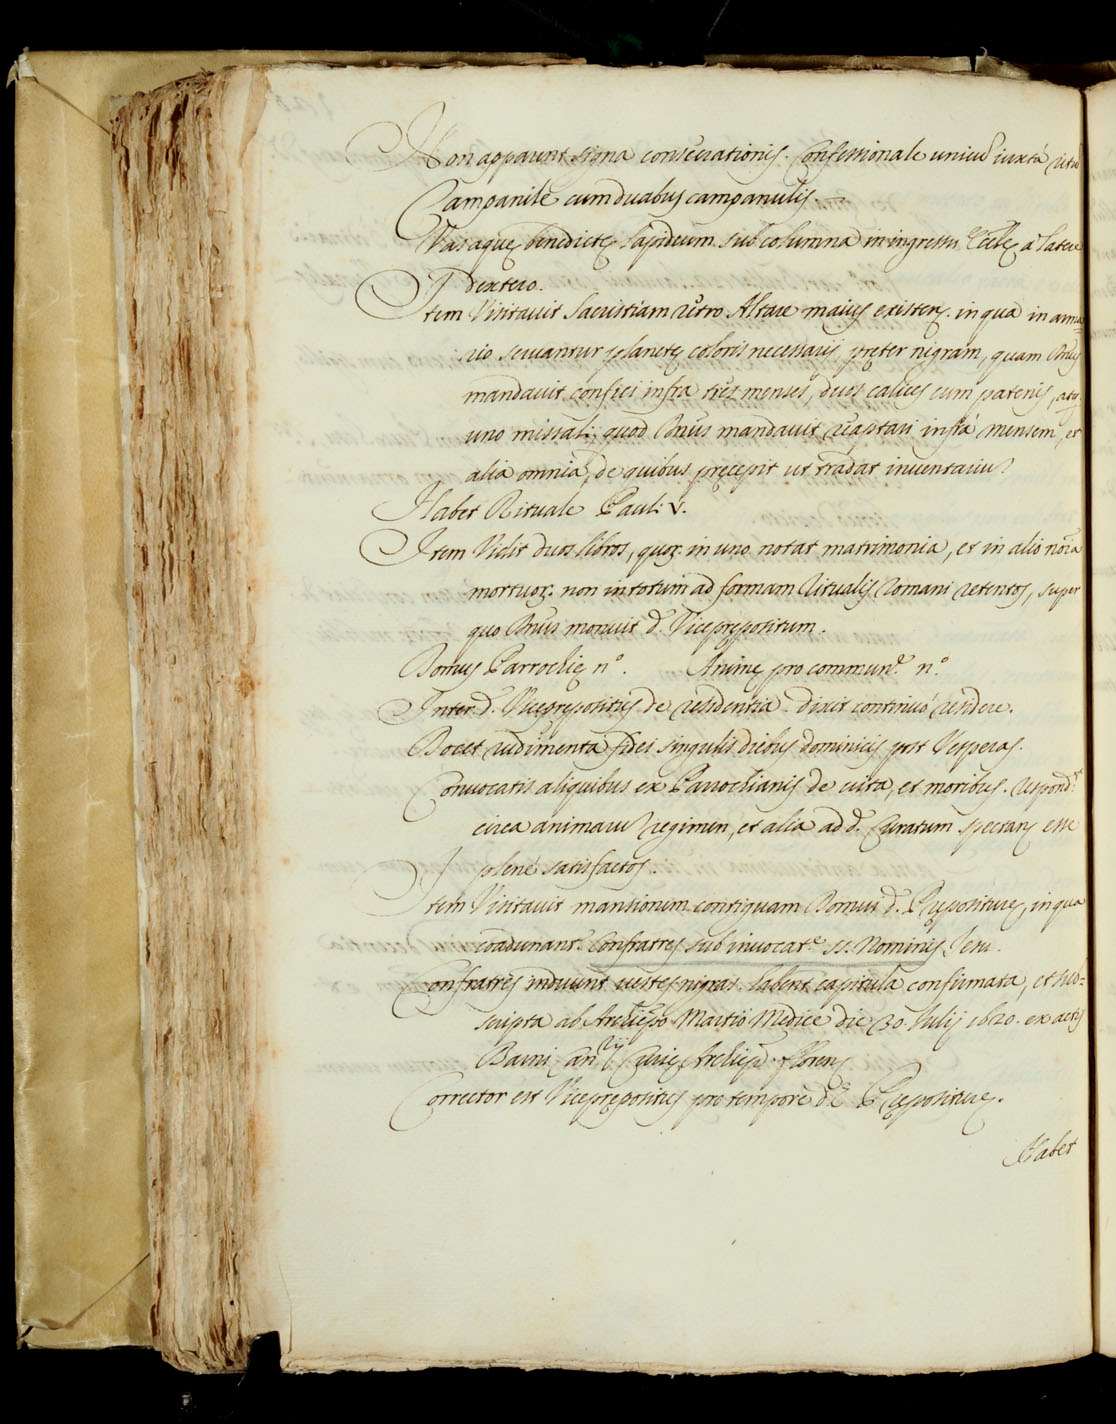 Non apparent signa consecrationis. Confessionale unicũ iuxta
Campanile cum duabus campanulis.
Vas aquę benedictę lapideum sub columna in ingressu Eccłę a latere
dextero.
Item Visitauit Sacristiam retro Altare maius existens. in qua in arma=
rio seruantur planetę coloris necessarij, pręter nigram, quam Dnũs
mandauit confici infra tres menses, duos calices cum patenis, atq.
uno missali, quod Dnũs mandauit reaptari infra mensem, et
alia omnia, de quibus pręcepit ut tradat inuentariũ
Habet Rituale Pauli V.
Item Vidit duos libros, quor. in uno notat matrimonia, et in alio noĩa
mortuor. non in totum ad formam Ritualis Romani retentos, super
quo Dnũs monuit d. Viceprępositum.
Domus Parrochię nº. Animę pro commun.e nº
Inter. d. Viceprępositus de residentia dixit continuò residere.
Docet rudimenta fidei singulis diebus dominicis post Vesperas.
Conuocatis aliquibus ex Parrochianis de uita, et moribus. respond.t
circa animarũ regimen, et alia ad d. Curatum spectans esse
plenè satisfactos.
Item Visitauit mansionem contiguam Domui d. Pręposituręe, in qua
coadunant. Confratres sub inuocat.e ss. Nominis Iesu.
Confratres induunt uestes nigras. habent capitula confirmata, et sub=
scripta ab Archiep̃o Martio Medice die 30. Iulij 1620. ex actis
Curię Archiep. Floren.
Corrector est Viceprępositus pro tempore d.ę Pręposituręe.
Habet